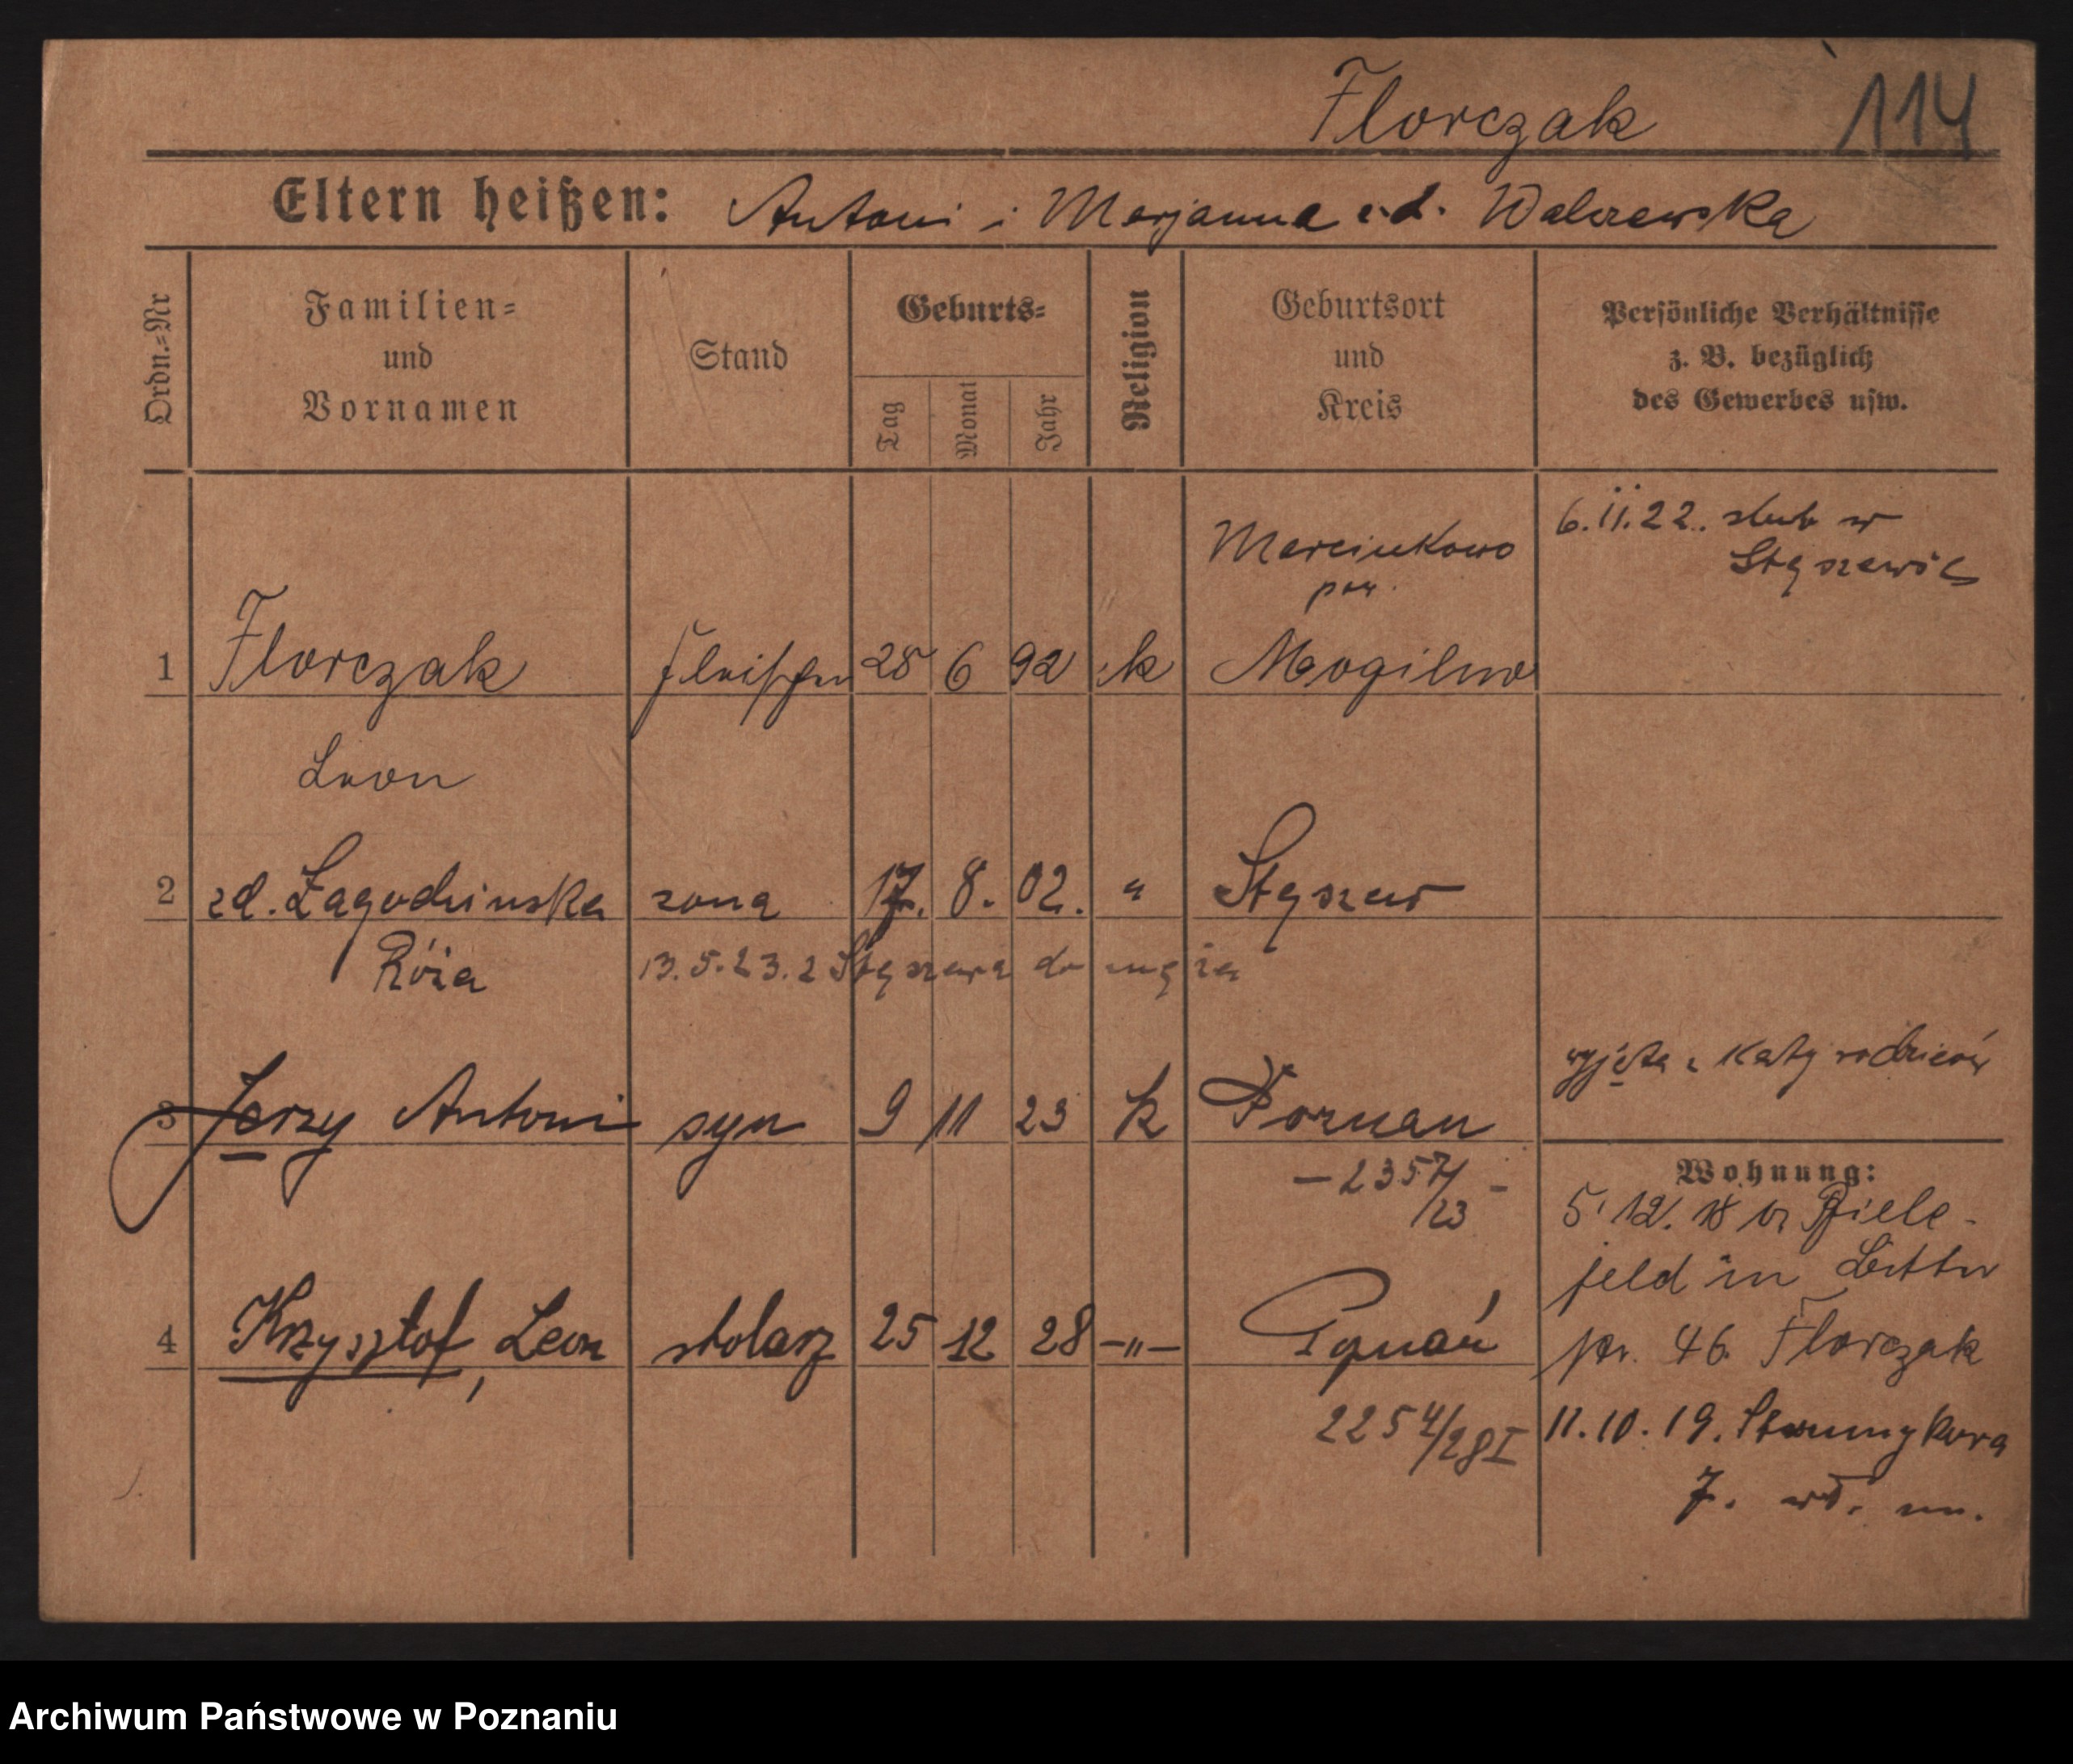 Florczak 114
Eltern heißen: Antoni i Marjanna z.d. Walczewska
Ordn.-Nr
Familien=
und
Vornamen
Stand
Geburts=
Tag
Monat
Jahr
Religion
Geburtsort
und
Kreis
Persönliche Verhältnisse
z. B. bezüglich
des Gewerbes usw.
Marcinkowo
pow.
6.11.22. slub w
Stęszewie
1 Florczak Fleischer 28 6 92 k Mogilno
Leon
2 zd. Łagodzinska zona 17. 8. 02. " Stęszew
Róża 13.5.23. z Stęszewa do męża
wyjęta z karty rodziców
3 Jerzy Antoni syn 9 11 23 k Poznan
– 2357/23 –
Wohnung:
5. 12. 18 Biele-
feld in
46. Florczak
4 Krzysztof, Leon stolarz 25 12 28 –"– Poznań
2254/28 I
11. 10. 19.
7.
Archiwum Państwowe w Poznaniu